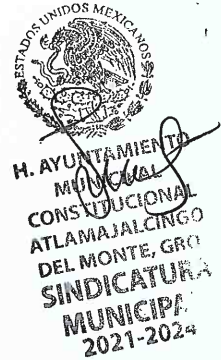 ESTADOS UNIDOS MEXICANOS
H. AYUNTAMIENTO
MUNICIPAL
CONSTITUCIONAL
ATLAMAJALCINGO
DEL MONTE, GRO
SINDICATURA
MUNICIPAL
2021-2024